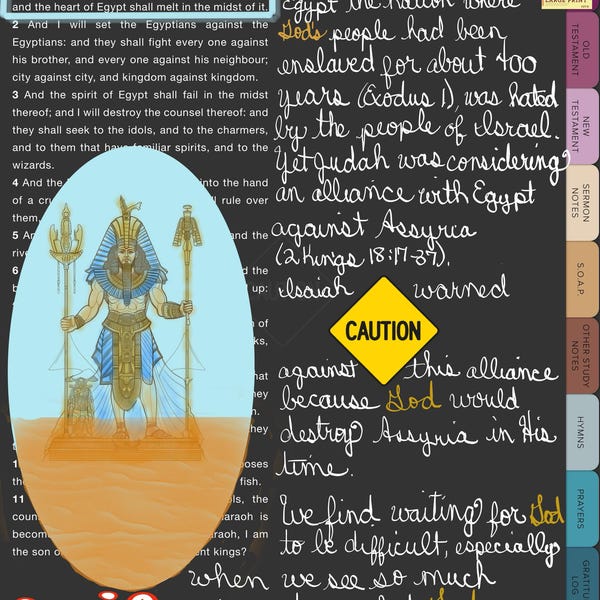 and the heart of Egypt shall melt in the midst of it.
2 And I will set the Egyptians against the
Egyptians: and they shall fight every one against
his brother, and every one against his neighbour;
city against city, and kingdom against kingdom.
3 And the spirit of Egypt shall fail in the midst
thereof; and I will destroy the counsel thereof: and
they shall seek to the idols, and to the charmers,
and to them that have familiar spirits, and to the
wizards.
4 And the into the hand
of a rule over
them,
5 and the
6 the
up;
of
that
they
they
fish.
11 the
Pharaoh is
becom Pharaoh, I am
the son o kings?
Egypt the nation where
Gods people had been
enslaved for about 400
years (Exodus 1), was hated
by the people of Israel.
Yet Judah was considering
an alliance with Egypt
against Assyria
(2 Kings 18:17-37).
Isaiah warned
CAUTION
against this alliance
because God would
destroy Assyria in His
time.
We find waiting for God
to be difficult, especially
when we see so much
LARGE PRINT
OLD TESTAMENT
NEW TESTAMENT
SERMON NOTES
S.O.A.P.
OTHER STUDY NOTES
HYMNS
PRAYERS
GRATITU
LOG